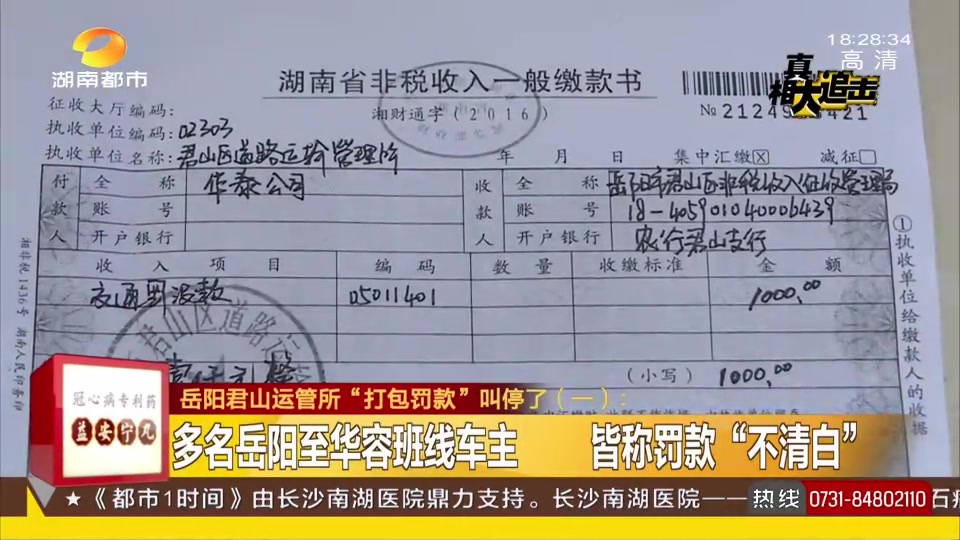 湖南都市
18:28:34
高清
真相大追击
湖南省非税收入一般缴款书
湘财通字(2016)
征收大厅编码:
执收单位编码: 02303
执收单位名称: 君山区道路运输管理所
年 月 日 集中汇缴☒ 减征☐
付款人 全称 华泰公司 收款人 全称 岳阳市君山区非税收入征收管理局
账号 账号 18-405901040006439
开户银行 开户银行 农行君山支行
收入项目 编码 数量 收缴标准 金额
交通罚没款 05011401 1000.00
君山区道路运
(小写) 1000.00
①执收单位给缴款人的收据
湘非税1436号 湖南人民印务印
冠心病专利药
益安宁丸
岳阳君山运管所“打包罚款”叫停了(一):
多名岳阳至华容班线车主 皆称罚款“不清白”
★《都市1时间》由长沙南湖医院鼎力支持。长沙南湖医院——
热线 0731-84802110